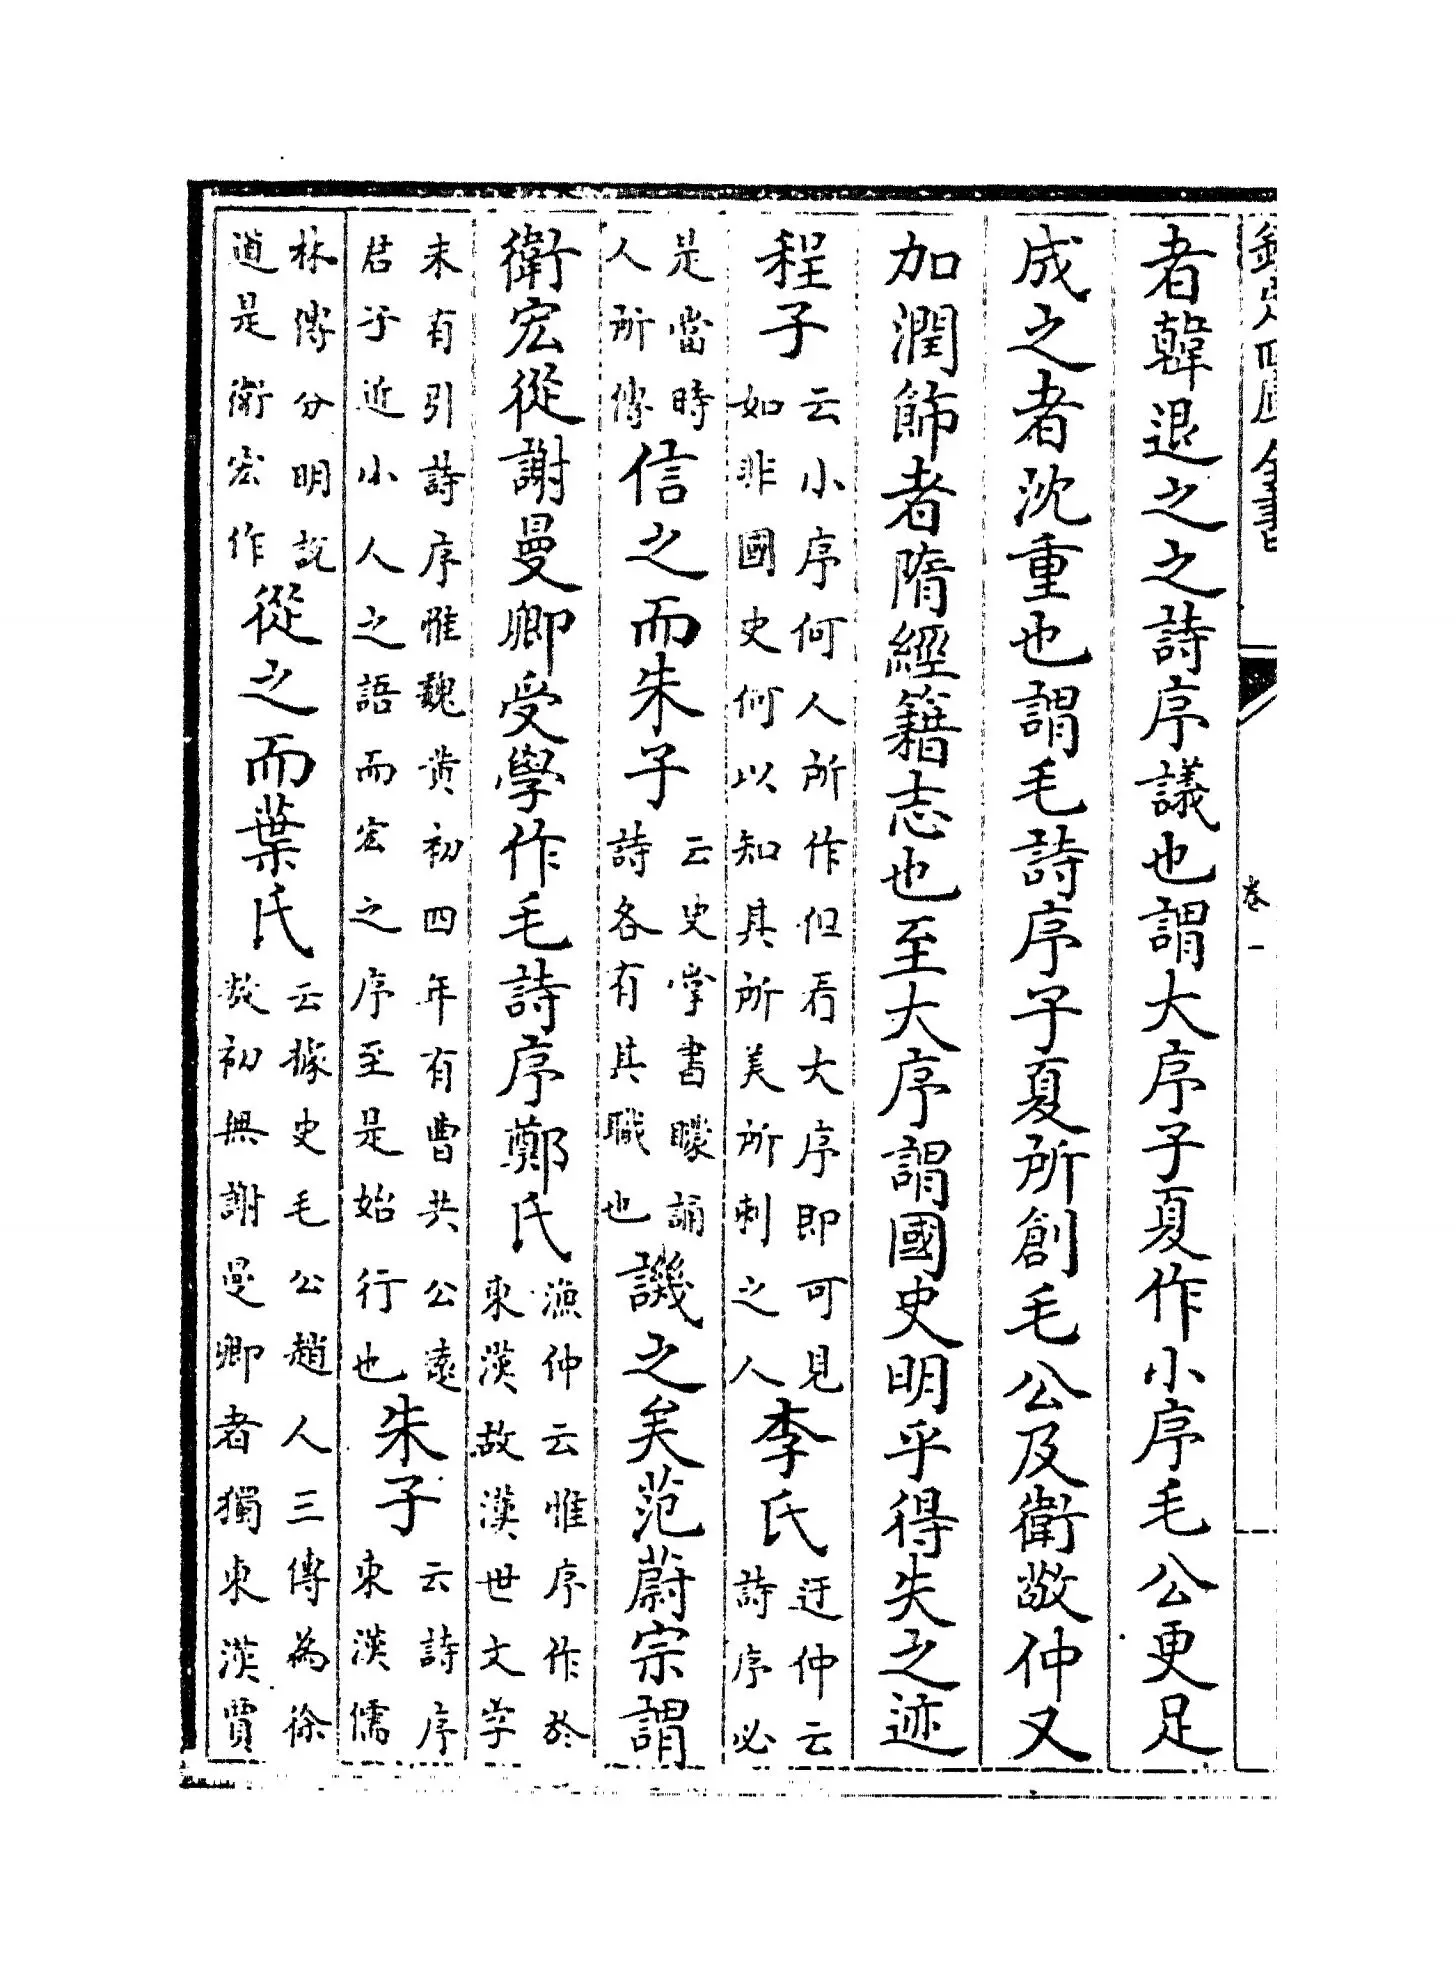 欽定四庫全書
卷一
者韓退之之詩序議也謂大序子夏作小序毛公更足
成之者沈重也謂毛詩序子夏所創毛公及衛敬仲又
加潤飾者隋經籍志也至大序謂國史明乎得失之迹
程子云小序何人所作但看大序即可見如非國史何以知其所美所刺之人李氏迂仲云詩序必
是當時人所傳信之而朱子云史掌書矇誦詩各有其職也譏之矣范蔚宗謂
衛宏從謝曼卿受學作毛詩序鄭氏漁仲云惟序作於東漢故漢世文字
未有引詩序惟魏黄初四年有曹共公逺君子近小人之語而宏之序至是始行也朱子云詩序東漢儒
林傳分明說道是衛宏作從之而葉氏云據史毛公趙人三傳為徐敖初無謝曼卿者獨東漢賈